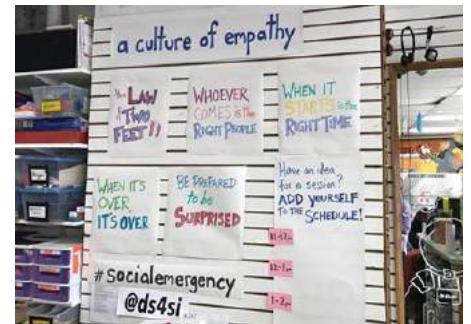 a culture of empathy
The LAW
of TWO
FEET!!
WHOEVER
COMES is the
RIGHT PEOPLE
WHEN IT
STARTS is the
RIGHT TIME
WHEN IT'S
OVER,
IT'S OVER
BE PREPARED
to be
SURPRISED
Have an idea
for a session?
ADD YOURSELF
TO THE SCHEDULE!
12-1pm
1-2pm
#socialemergency
@ds4si